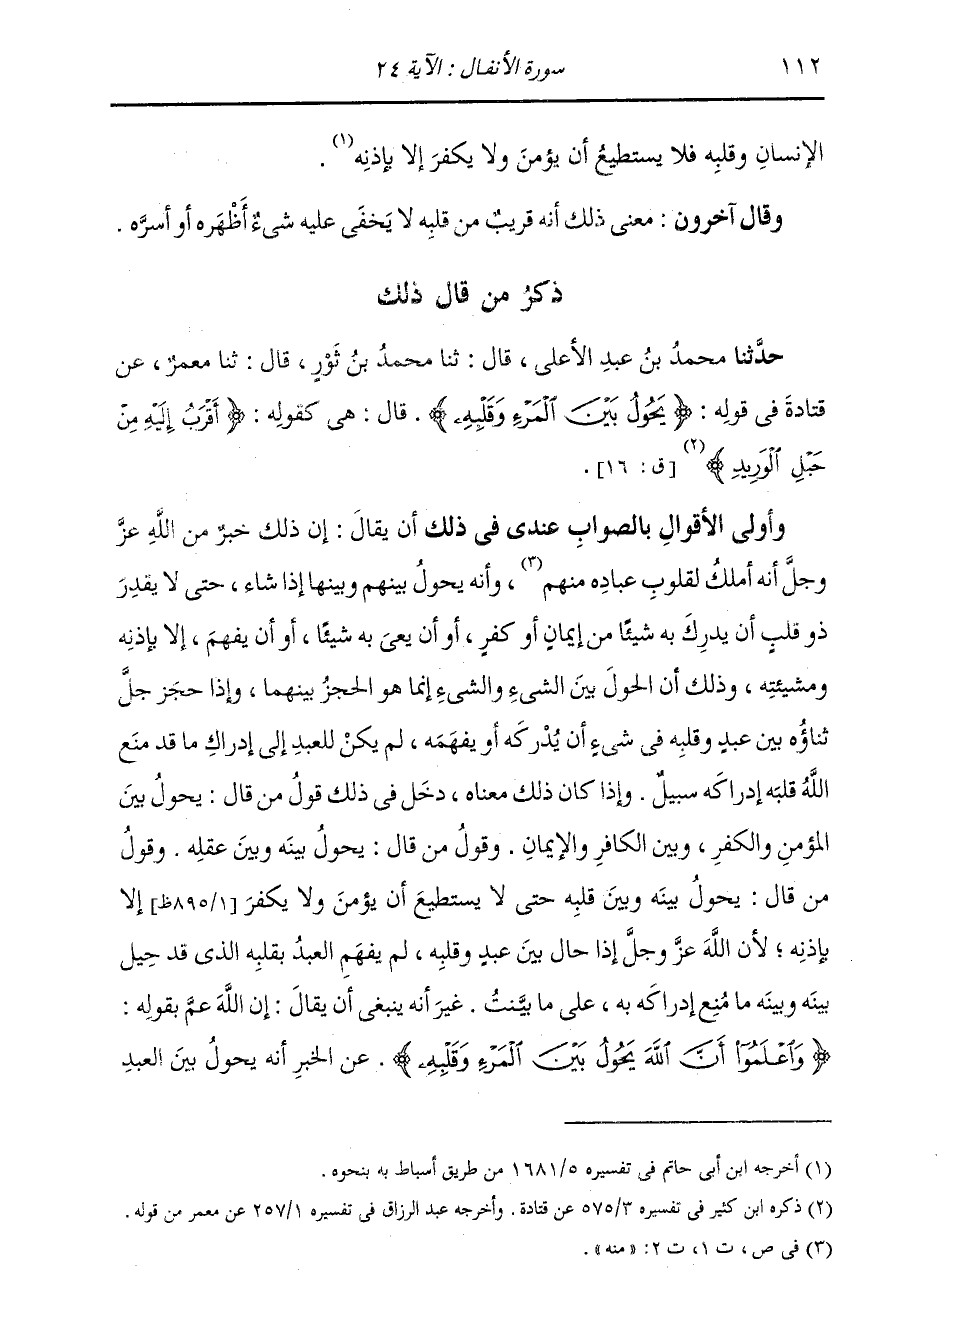 ١١٢ سورة الأنفال : الآية ٢٤
الإنسانِ وقلبِه فلا يستطيعُ أن يؤمنَ ولا يكفرَ إلا بإذنِه(١) .
وقال آخرون : معنى ذلك أنه قريبٌ من قلبِه لا يَخفَى عليه شىءٌ أَظْهَره أو أسرَّه .
ذكرُ من قال ذلك
حدَّثنا محمدُ بنُ عبدِ الأعلى ، قال : ثنا محمدُ بنُ ثَوْرٍ ، قال : ثنا معمرٌ ، عن
قتادةَ فى قولِه : ﴿ يَحُولُ بَيْنَ ٱلْمَرْءِ وَقَلْبِهِۦ ﴾ . قال : هى كقولِه : ﴿ أَقْرَبُ إِلَيْهِ مِنْ
حَبْلِ ٱلْوَرِيدِ ﴾(٢) [ق : ١٦] .
وأولى الأقوالِ بالصوابِ عندى فى ذلك أن يقالَ : إن ذلك خبرٌ من اللَّهِ عزَّ
وجلَّ أنه أملكُ لقلوبِ عبادِه منهم(٣) ، وأنه يحولُ بينهم وبينها إذا شاء ، حتى لا يقدِرَ
ذو قلبٍ أن يدرِكَ به شيئًا من إيمانٍ أو كفرٍ ، أو أن يعىَ به شيئًا ، أو أن يفهمَ ، إلا بإذنِه
ومشيئتِه ، وذلك أن الحولَ بينَ الشىءِ والشىءِ إنما هو الحجزُ بينهما ، وإذا حجَز جلَّ
ثناؤُه بين عبدٍ وقلبِه فى شىءٍ أن يُدْركَه أو يفهَمَه ، لم يكنْ للعبدِ إلى إدراكِ ما قد منَع
اللَّهُ قلبَه إدراكَه سبيلٌ . وإذا كان ذلك معناه ، دخَل فى ذلك قولُ من قال : يحولُ بينَ
المؤمنِ والكفرِ ، وبين الكافرِ والإيمانِ . وقولُ من قال : يحولُ بينَه وبينَ عقلِه . وقولُ
من قال : يحولُ بينَه وبينَ قلبِه حتى لا يستطيعَ أن يؤمنَ ولا يكفرَ [٨٩٥/١ظ] إلا
بإذنِه ؛ لأن اللَّهَ عزَّ وجلَّ إذا حال بينَ عبدٍ وقلبِه ، لم يفهَمِ العبدُ بقلبِه الذى قد حِيل
بينَه وبينَه ما مُنِع إدراكَه به ، على ما بيَّنتُ . غيرَ أنه ينبغى أن يقالَ : إن اللَّهَ عمَّ بقولِه :
﴿ وَٱعْلَمُوٓا۟ أَنَّ ٱللَّهَ يَحُولُ بَيْنَ ٱلْمَرْءِ وَقَلْبِهِۦ ﴾ . عن الخبرِ أنه يحولُ بينَ العبدِ
(١) أخرجه ابن أبى حاتم فى تفسيره ١٦٨١/٥ من طريق أسباط به بنحوه .
(٢) ذكره ابن كثير فى تفسيره ٥٧٥/٣ عن قتادة . وأخرجه عبد الرزاق فى تفسيره ٢٥٧/١ عن معمر من قوله .
(٣) فى ص ، ت ١ ، ت ٢ : « منه » .